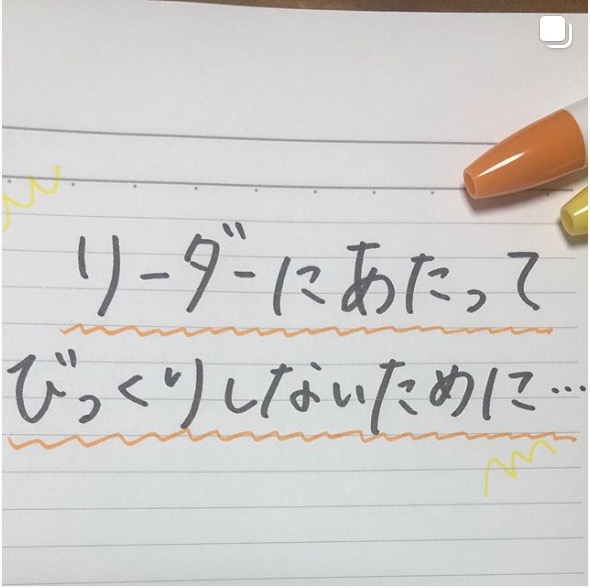 リーダーにあたって
びっくりしないために…